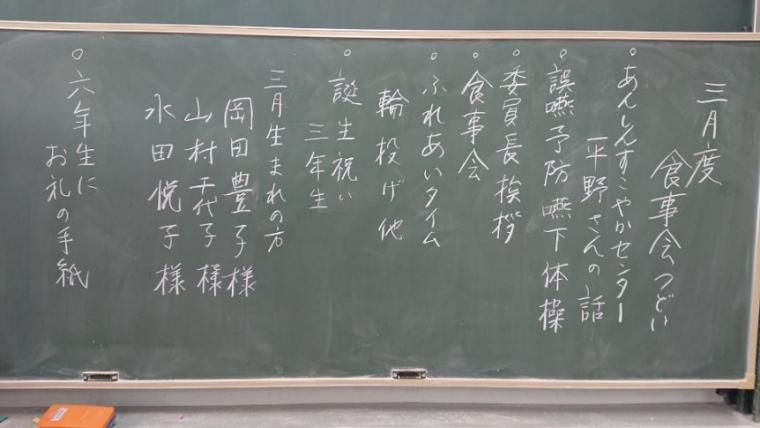 三月度
食事会つどい
○あんしんすこやかセンター
平野さんの話
○誤嚥予防嚥下体操
○委員長挨拶
○食事会
○ふれあいタイム
輪投げ他
○誕生祝い
三年生
三月生まれの方
岡田豊子様
山村千代子様
水田悦子様
○六年生に
お礼の手紙